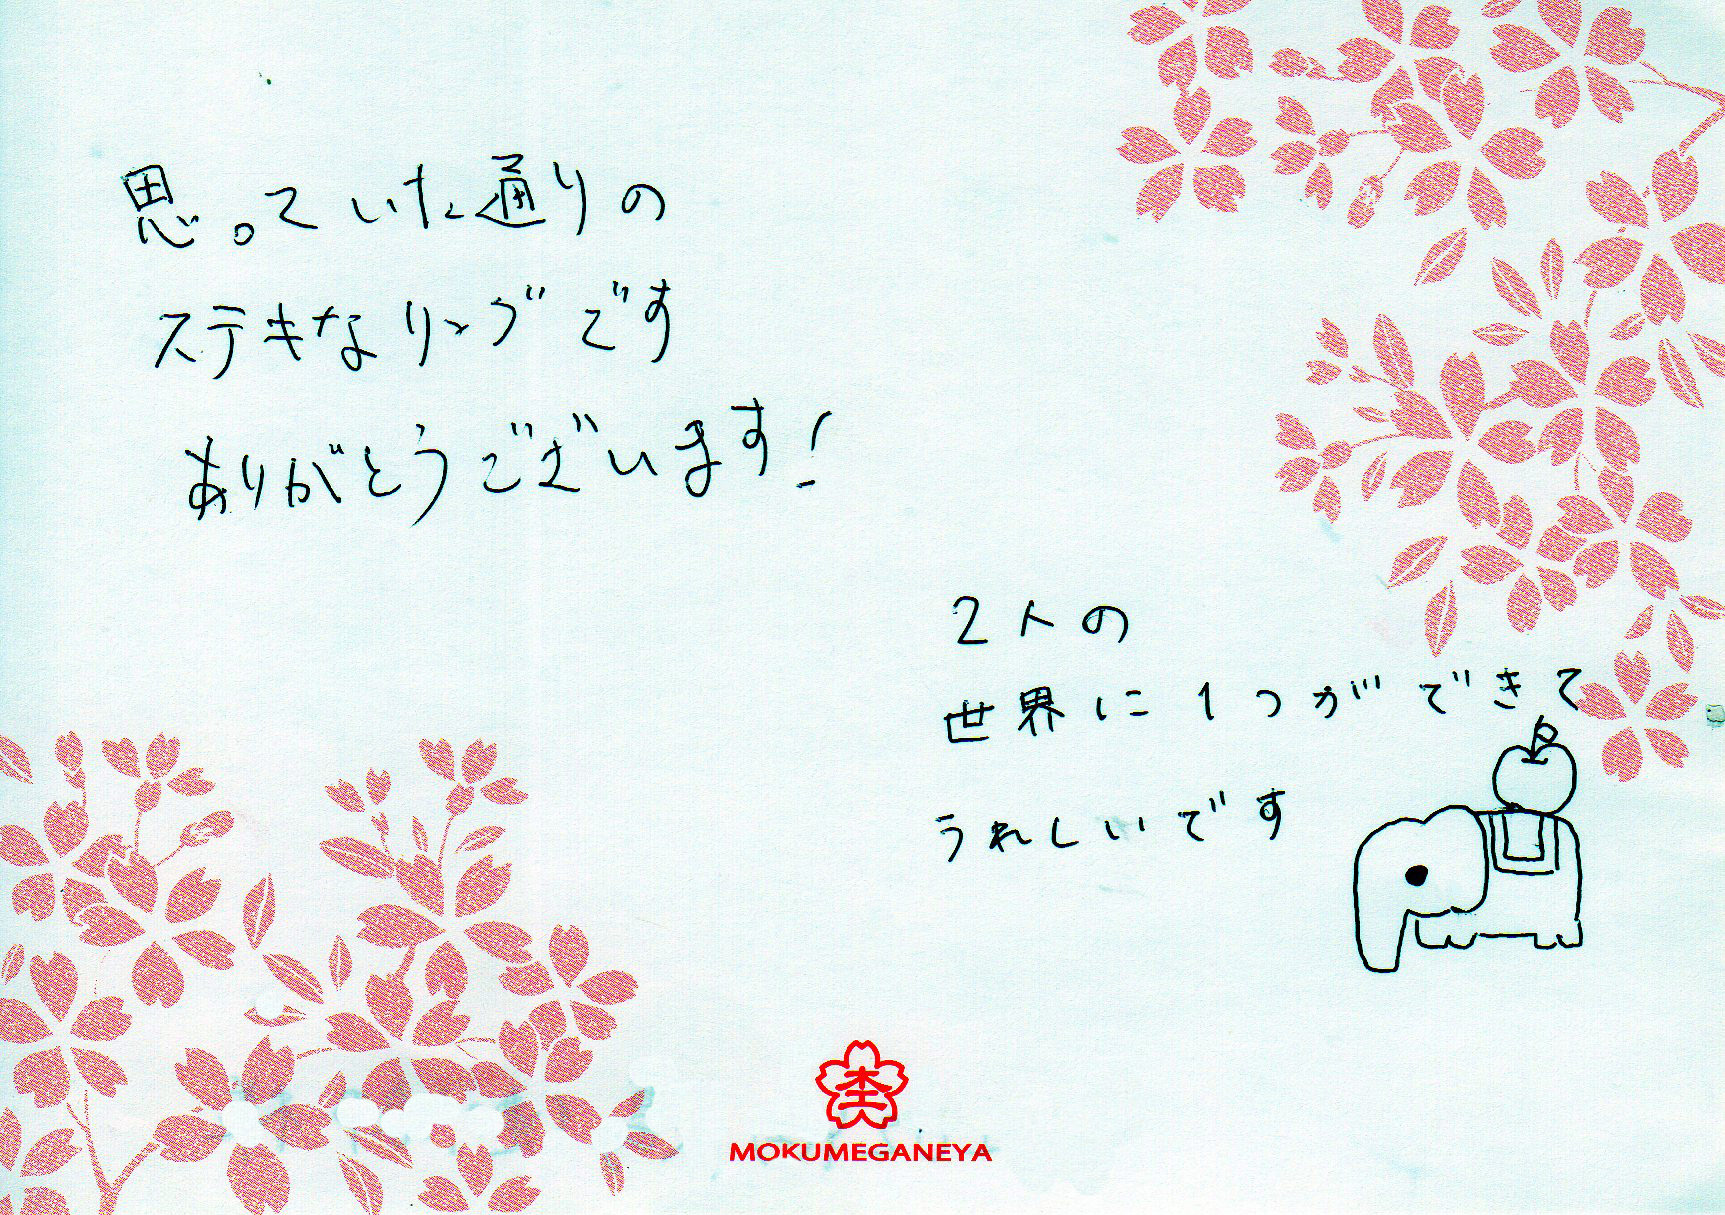 思っていた通りの
ステキなリングです
ありがとうございます!
2人の
世界に1つができて
うれしいです
MOKUMEGANEYA